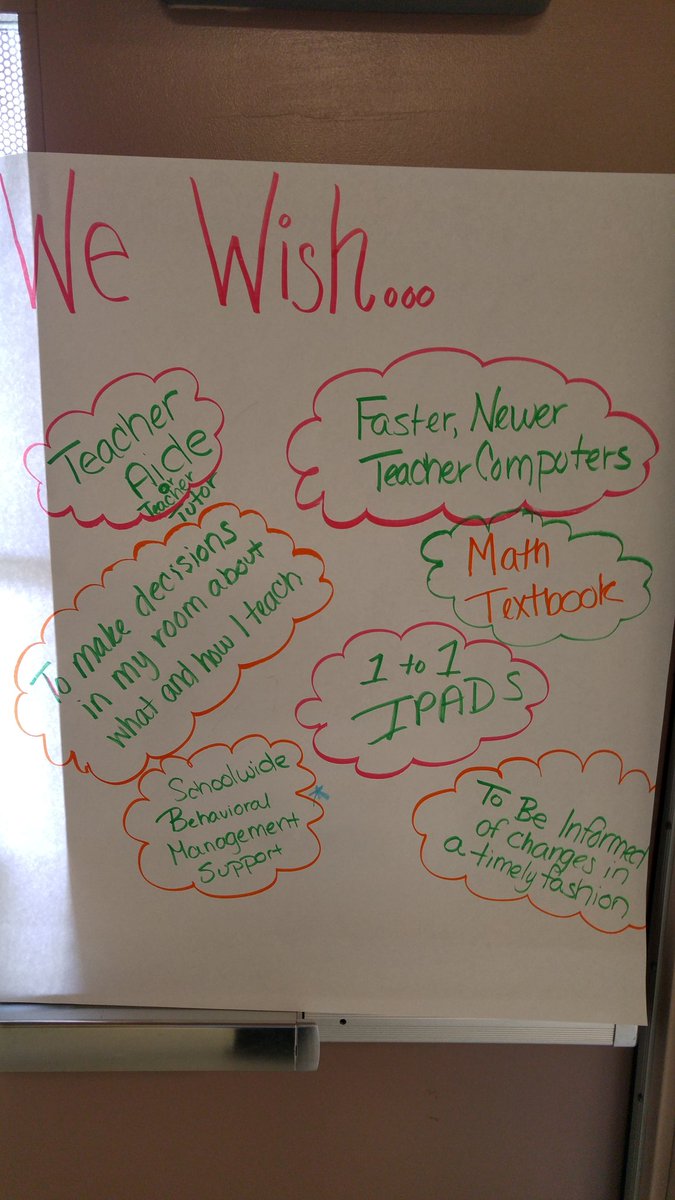 We Wish...
Teacher
Aide
or
Teacher
Tutor
Faster, Newer
Teacher Computers
To make decisions
in my room about
what and how I teach
Math
Textbook
1 to 1
IPADS
Schoolwide
Behavioral
Management
Support
To Be Informed
of changes in
a timely fashion